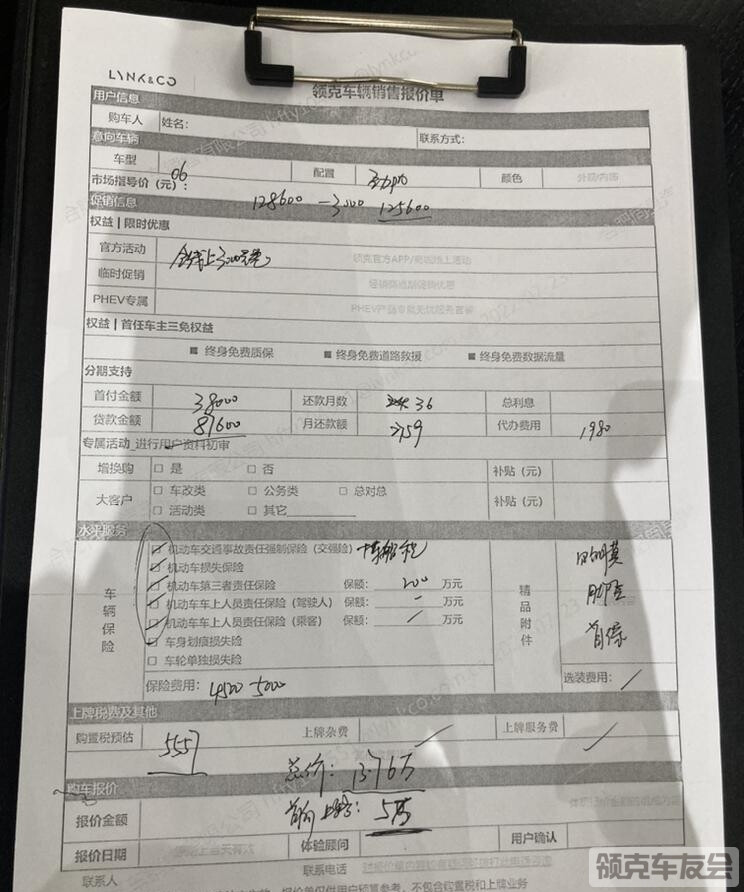 LYNK&CO
领克车辆销售报价单
用户信息
购车人 姓名: 联系方式:
意向车辆
车型 06 配置 劲pro 颜色 外观/内饰
市场指导价（元）: 128600 -3000 125600
促销信息
权益 | 限时优惠
官方活动 领克官方APP/商城线上活动
临时促销 经销商临时促销优惠
PHEV专属 PHEV产品专属无忧服务套餐
权益 | 首任车主三免权益
■ 终身免费质保 ■ 终身免费道路救援 ■ 终身免费数据流量
分期支持
首付金额 38000 还款月数 36 总利息
贷款金额 87600 月还款额 2759 代办费用 1980
专属活动_进行用户资料初审
增换购 □ 是 □ 否 补贴（元）
大客户 □ 车改类 □ 公务类 □ 总对总 补贴（元）
□ 活动类 □ 其它
水平服务
车辆保险
☑ 机动车交通事故责任强制保险（交强险） +车船税
☑ 机动车损失保险
☑ 机动车第三者责任保险 保额: 200 万元
☑ 机动车车上人员责任保险（驾驶人） 保额: - 万元
☑ 机动车车上人员责任保险（乘客） 保额: / 万元
□ 车身划痕损失险
□ 车轮单独损失险
保险费用: 4500-5000
精品附件
脚垫
首保
选装费用: /
上牌税费及其他
购置税预估 5557 上牌杂费 / 上牌服务费 /
总价: 13.76万
购车报价
首付上路: 5万
报价金额
报价日期 体验顾问 用户确认
联系人 联系电话
报价单仅供用户预算参考，不包含购置税和上牌业务
领克车友会